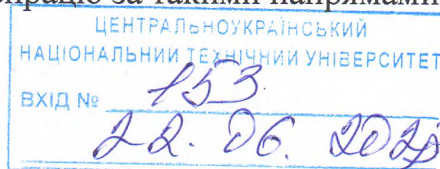 за такими напрямами
ЦЕНТРАЛЬНОУКРАЇНСЬКИЙ
НАЦІОНАЛЬНИЙ ТЕХНІЧНИЙ УНІВЕРСИТЕТ
ВХІД № 153
22. 06.